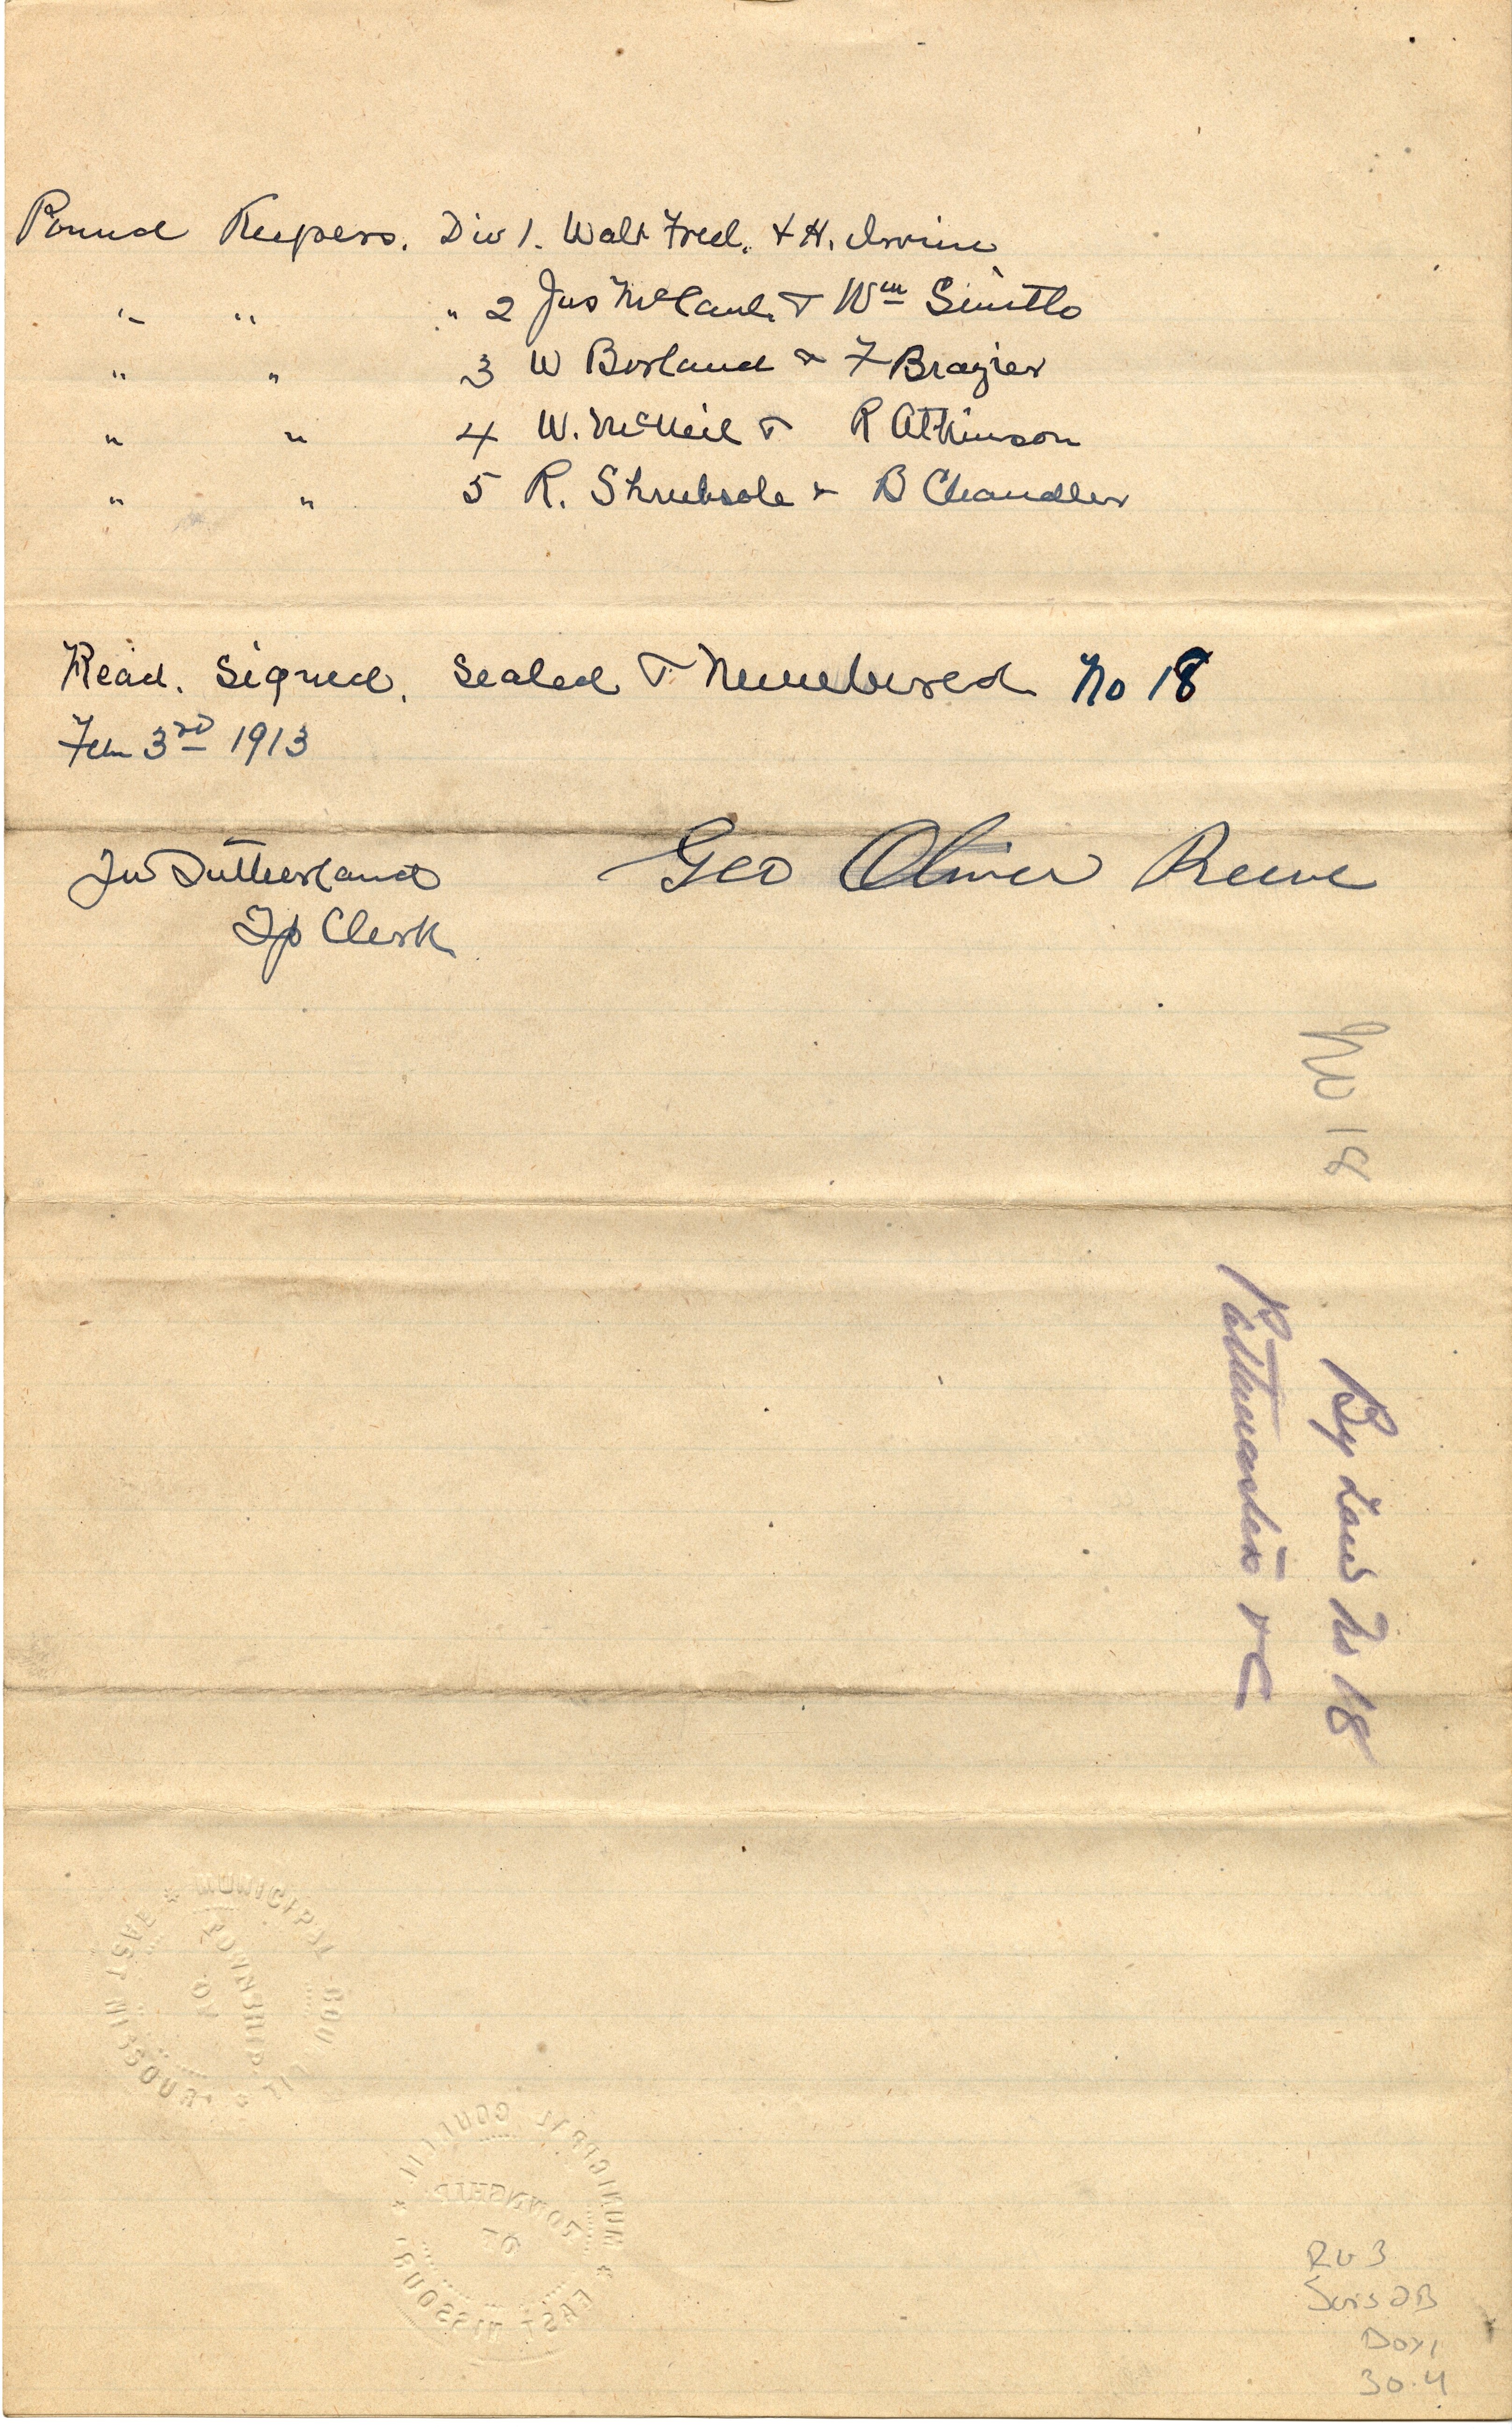 Pound Keepers. Div 1. Walt Fred. & H. Irvine
" " " 2 Jas McCaul. & Wm Smith
" " 3 W Borland & F Brazier
" " 4 W. McNeil & R Atkinson
" " 5 R. Shrubsole & B Chandler
Read. Signed. Sealed & Numbered No 18
Feb 3rd 1913
Sutherland
Tp Clerk
Geo Oliver Reeve
No 18
By Law No 18
Pathmasters &C
MUNICIPAL COUNCIL
TOWNSHIP
OF
EAST NISSOURI
MUNICIPAL COUNCIL
TOWNSHIP
OF
EAST NISSOURI
RG 3
Series 2B
Box 1
30.4